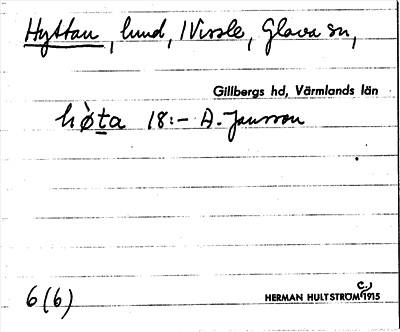 Hyttan, lund, /Vissle, Glava sn,
Gillbergs hd, Värmlands län
hø̀ta 18:– A. Jansson
6(6)
HERMAN HULTSTRÖM C.) 1915